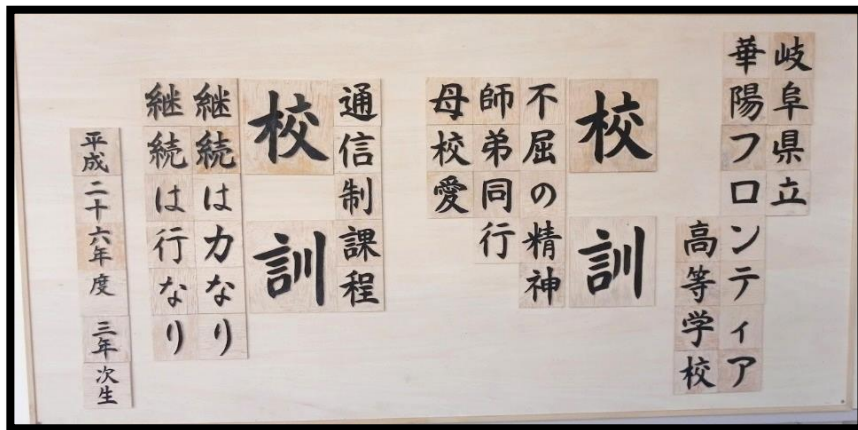 岐阜県立
華陽フロンティア
高等学校
校訓
不屈の精神
師弟同行
母校愛
通信制課程
校訓
継続は力なり
継続は行なり
平成二十六年度 三年次生